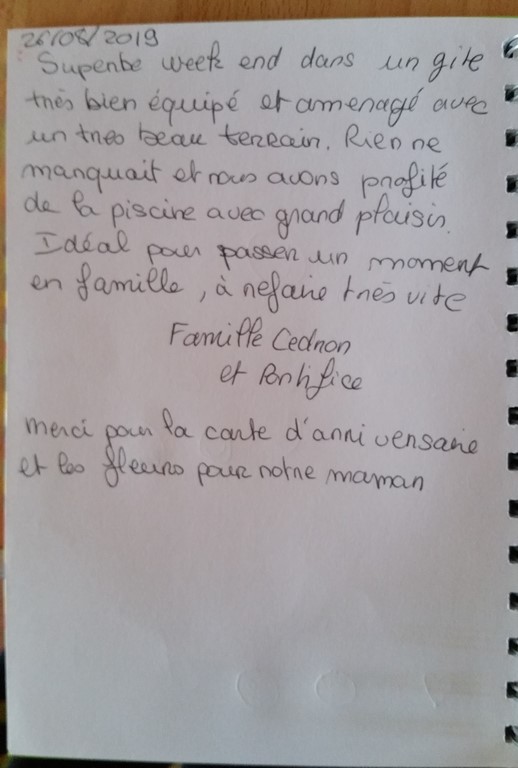 26/08/2019
Superbe week end dans un gite
très bien équipé et amenagé avec
un très beau terrain. Rien ne
manquait et nous avons profité
de la piscine avec grand plaisir.
Idéal pour passer un moment
en famille, à refaire très vite
Famille Cedron
et Pontifice
merci pour la carte d'anniversaire
et les fleurs pour notre maman